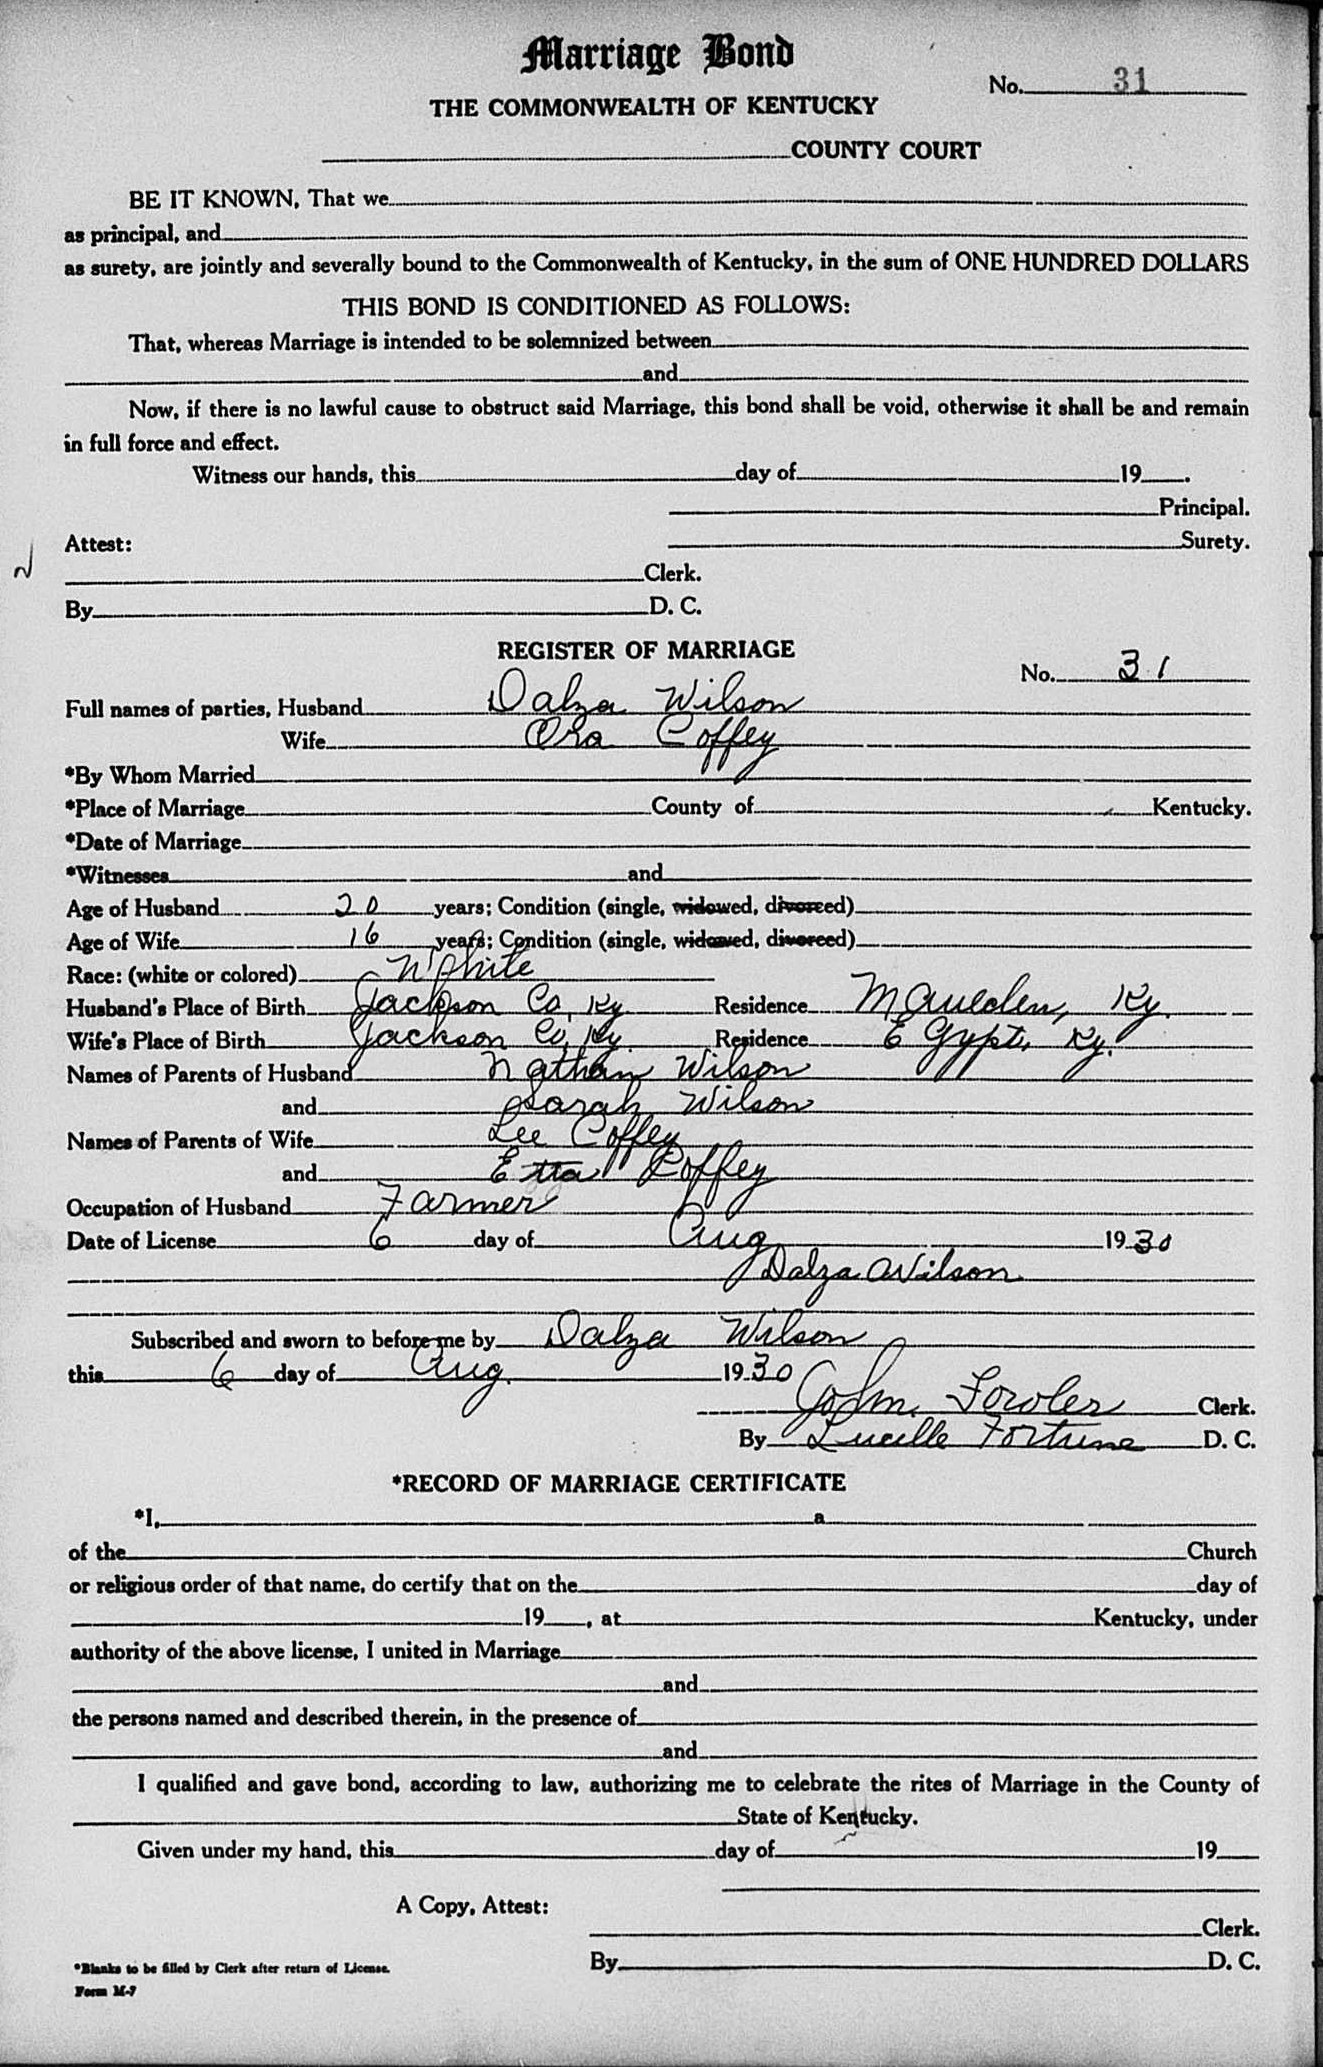 Marriage Bond
No. 31
THE COMMONWEALTH OF KENTUCKY
COUNTY COURT
BE IT KNOWN, That we
as principal, and
as surety, are jointly and severally bound to the Commonwealth of Kentucky, in the sum of ONE HUNDRED DOLLARS
THIS BOND IS CONDITIONED AS FOLLOWS:
That, whereas Marriage is intended to be solemnized between
and
Now, if there is no lawful cause to obstruct said Marriage, this bond shall be void, otherwise it shall be and remain
in full force and effect.
Witness our hands, this day of 19 .
Principal.
Attest: Surety.
Clerk.
By D. C.
REGISTER OF MARRIAGE
No. 31
Full names of parties, Husband Dalza Wilson
Wife Ora Coffey
*By Whom Married
*Place of Marriage County of Kentucky.
*Date of Marriage
*Witnesses and
Age of Husband 20 years; Condition (single, widowed, divorced)
Age of Wife 16 years; Condition (single, widowed, divorced)
Race: (white or colored) White
Husband's Place of Birth Jackson Co, Ky. Residence Maulden, Ky.
Wife's Place of Birth Jackson Co, Ky. Residence Egypt, Ky.
Names of Parents of Husband Nathan Wilson
and Sarah Wilson
Names of Parents of Wife Lee Coffey
and Etta Coffey
Occupation of Husband Farmer
Date of License 6 day of Aug 1930
Dalza Wilson
Subscribed and sworn to before me by Dalza Wilson
this 6 day of Aug. 1930
John Fowler Clerk.
By Lucille Fortune D. C.
*RECORD OF MARRIAGE CERTIFICATE
*I, a
of the Church
or religious order of that name, do certify that on the day of
19 , at Kentucky, under
authority of the above license, I united in Marriage
and
the persons named and described therein, in the presence of
and
I qualified and gave bond, according to law, authorizing me to celebrate the rites of Marriage in the County of
State of Kentucky.
Given under my hand, this day of 19
A Copy, Attest:
Clerk.
*Blanks to be filled by Clerk after return of License. By D. C.
Form M-7